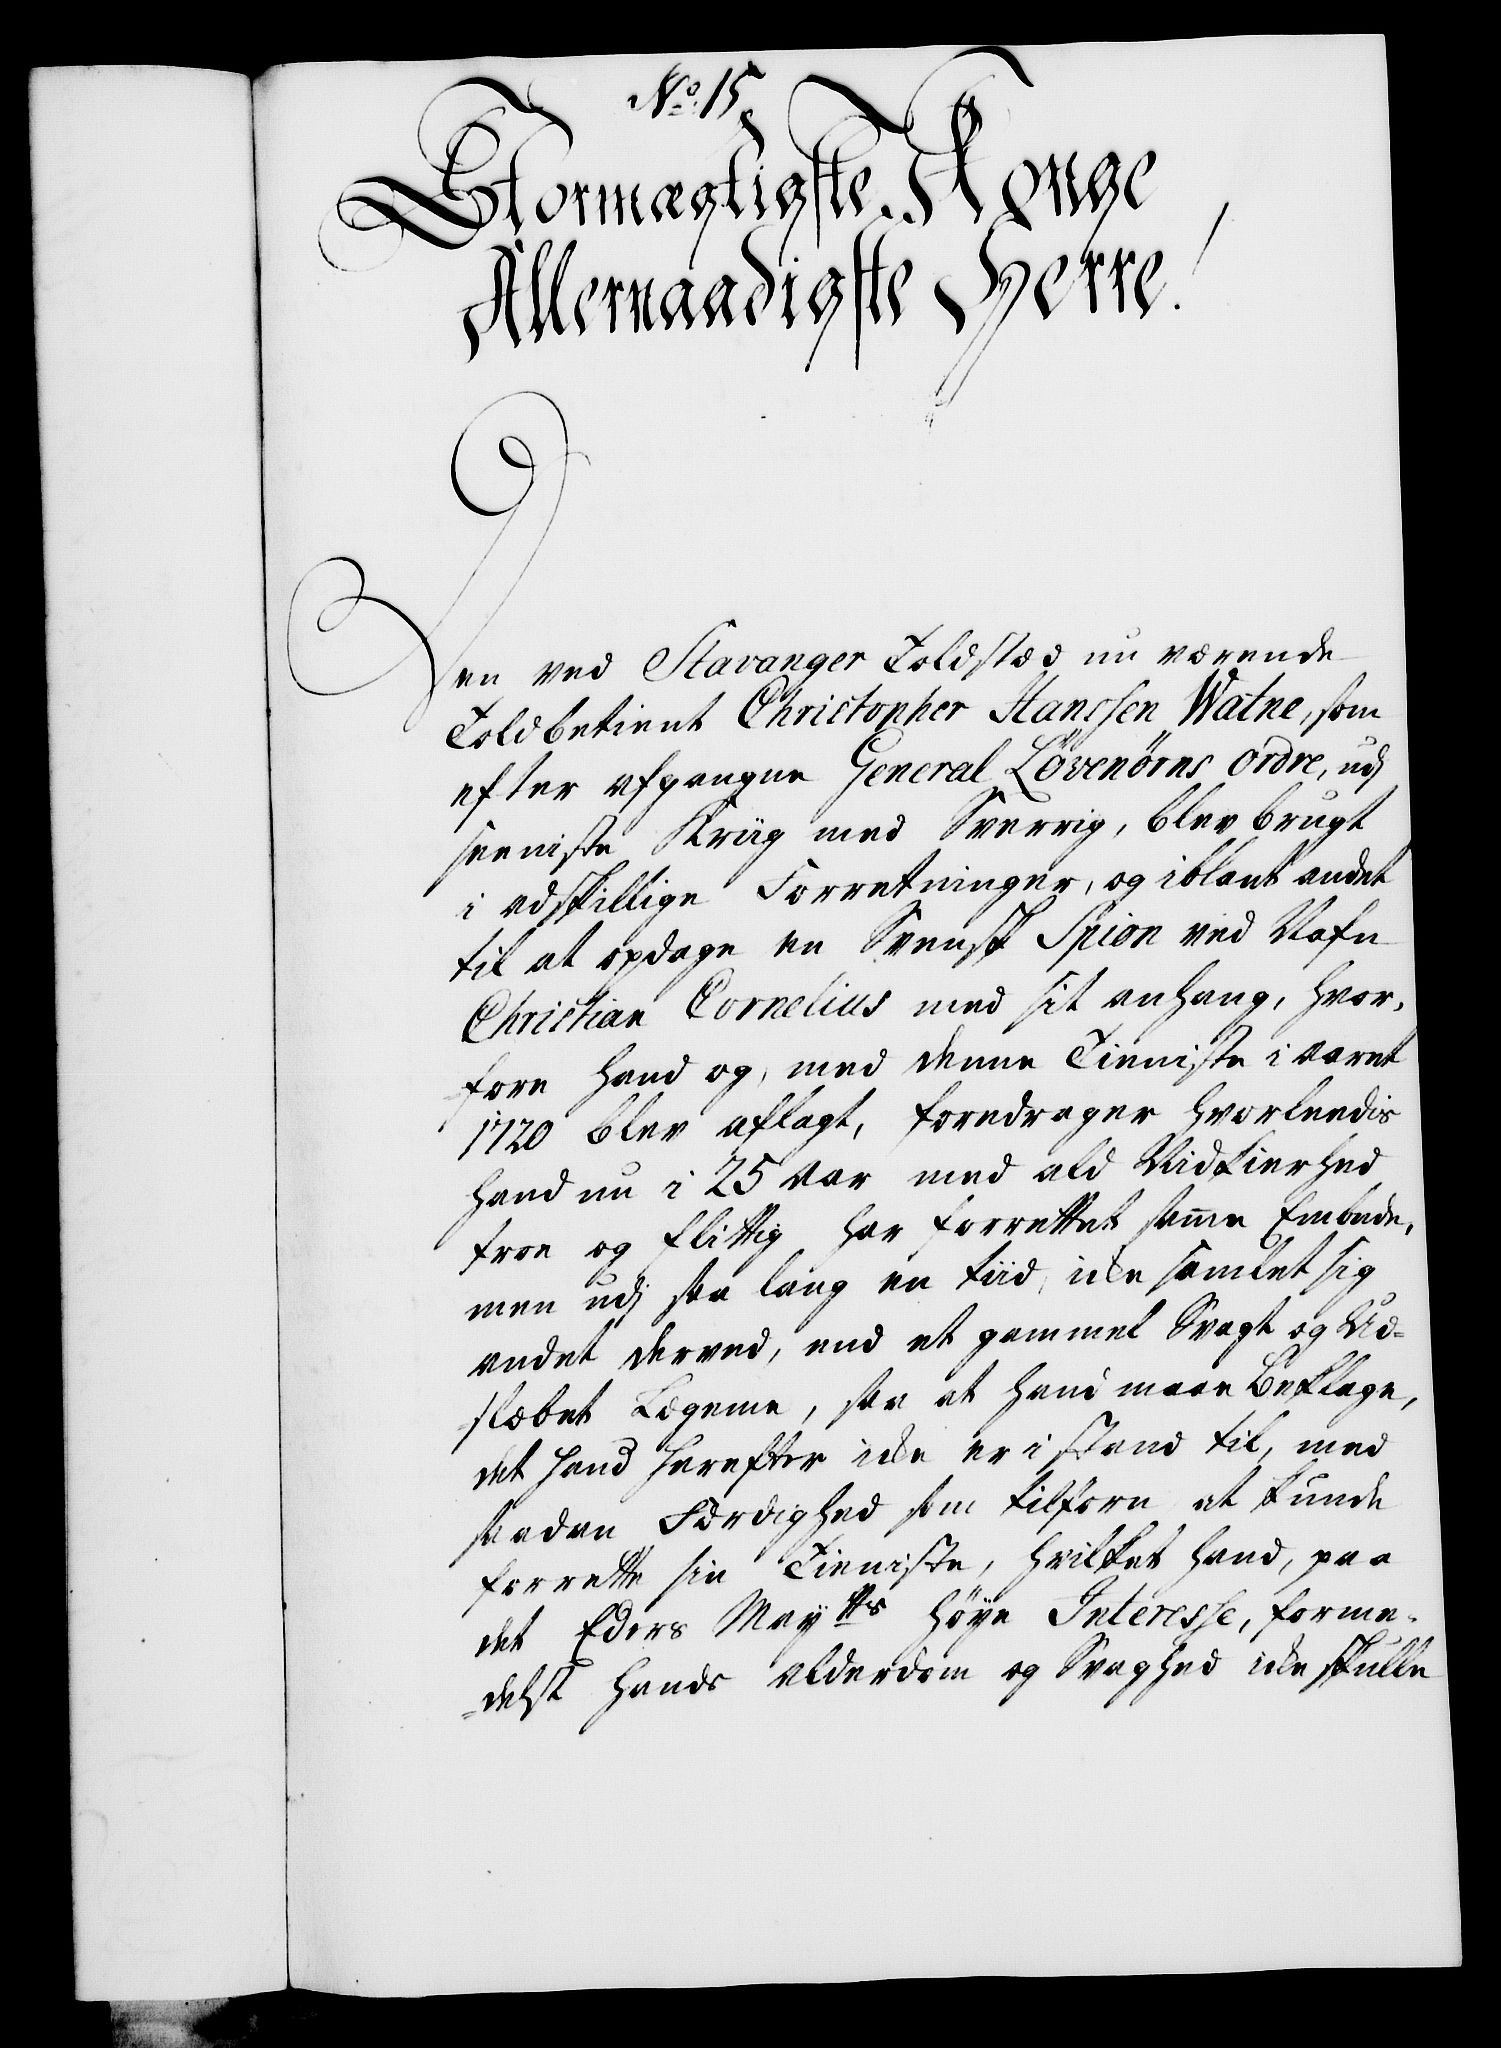 No: 15
Stormægtigste Konge
Allernaadigste Herre!
Den ved Stavanger Toldstæd nu værende
Toldbetient Christopher Hanssen Watne, som
efter afgangne General Lövenörns ordre, udj
seeniste Kriig med Sverrig, blev brugt
i adskillige Forretninger, og iblant andet
til at opdage en Svensk Spion ved Nafn
Christian Cornelius med sit anhang, hvor-
fore hand og, med denne Tieniste i Aaret
1720 blev aflagt, foredrager hvorleedis
hand nu i 25 Aar med ald Nidkierhed
troe og flittig har forrettet samme Embede,
men udj saa lang en tiid, icke samlet sig
andet derved, end et gammel Svagt og Ud-
slæbet Legeme, saa at hand maae Beklage,
det hand herefter icke er i stand til, med
saadan Færdighed som tilforn at kunde
forrette sin Tieniste, hvilket hand, paa
det Eders Mayts höye Interesse, forme-
delst hands alderdom og Svaghed icke skulle